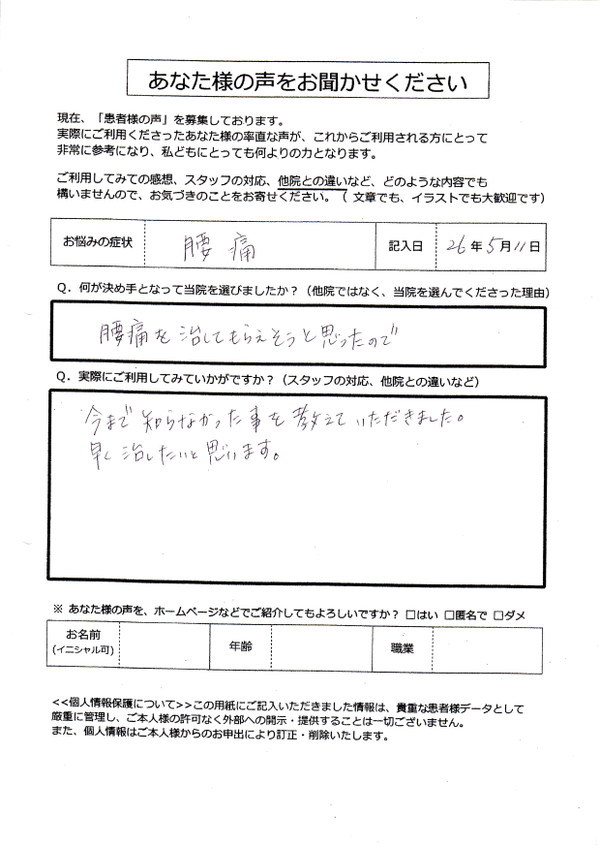 あなた様の声をお聞かせください
現在、「患者様の声」を募集しております。
実際にご利用くださったあなた様の率直な声が、これからご利用される方にとって
非常に参考になり、私どもにとっても何よりの力となります。
ご利用してみての感想、スタッフの対応、他院との違いなど、どのような内容でも
構いませんので、お気づきのことをお寄せください。（ 文章でも、イラストでも大歓迎です）
お悩みの症状 腰痛 記入日 26年5月11日
Q．何が決め手となって当院を選びましたか？（他院ではなく、当院を選んでくださった理由）
腰痛を治してもらえそうと思ったので
Q．実際にご利用してみていかがですか？（スタッフの対応、他院との違いなど）
今まで知らなかった事を教えていただきました。
早く治したいと思います。
※ あなた様の声を、ホームページなどでご紹介してもよろしいですか？ □はい □匿名で □ダメ
お名前 年齢 職業
(イニシャル可)
<<個人情報保護について>>この用紙にご記入いただきました情報は、貴重な患者様データとして
厳重に管理し、ご本人様の許可なく外部への開示・提供することは一切ございません。
また、個人情報はご本人様からのお申出により訂正・削除いたします。